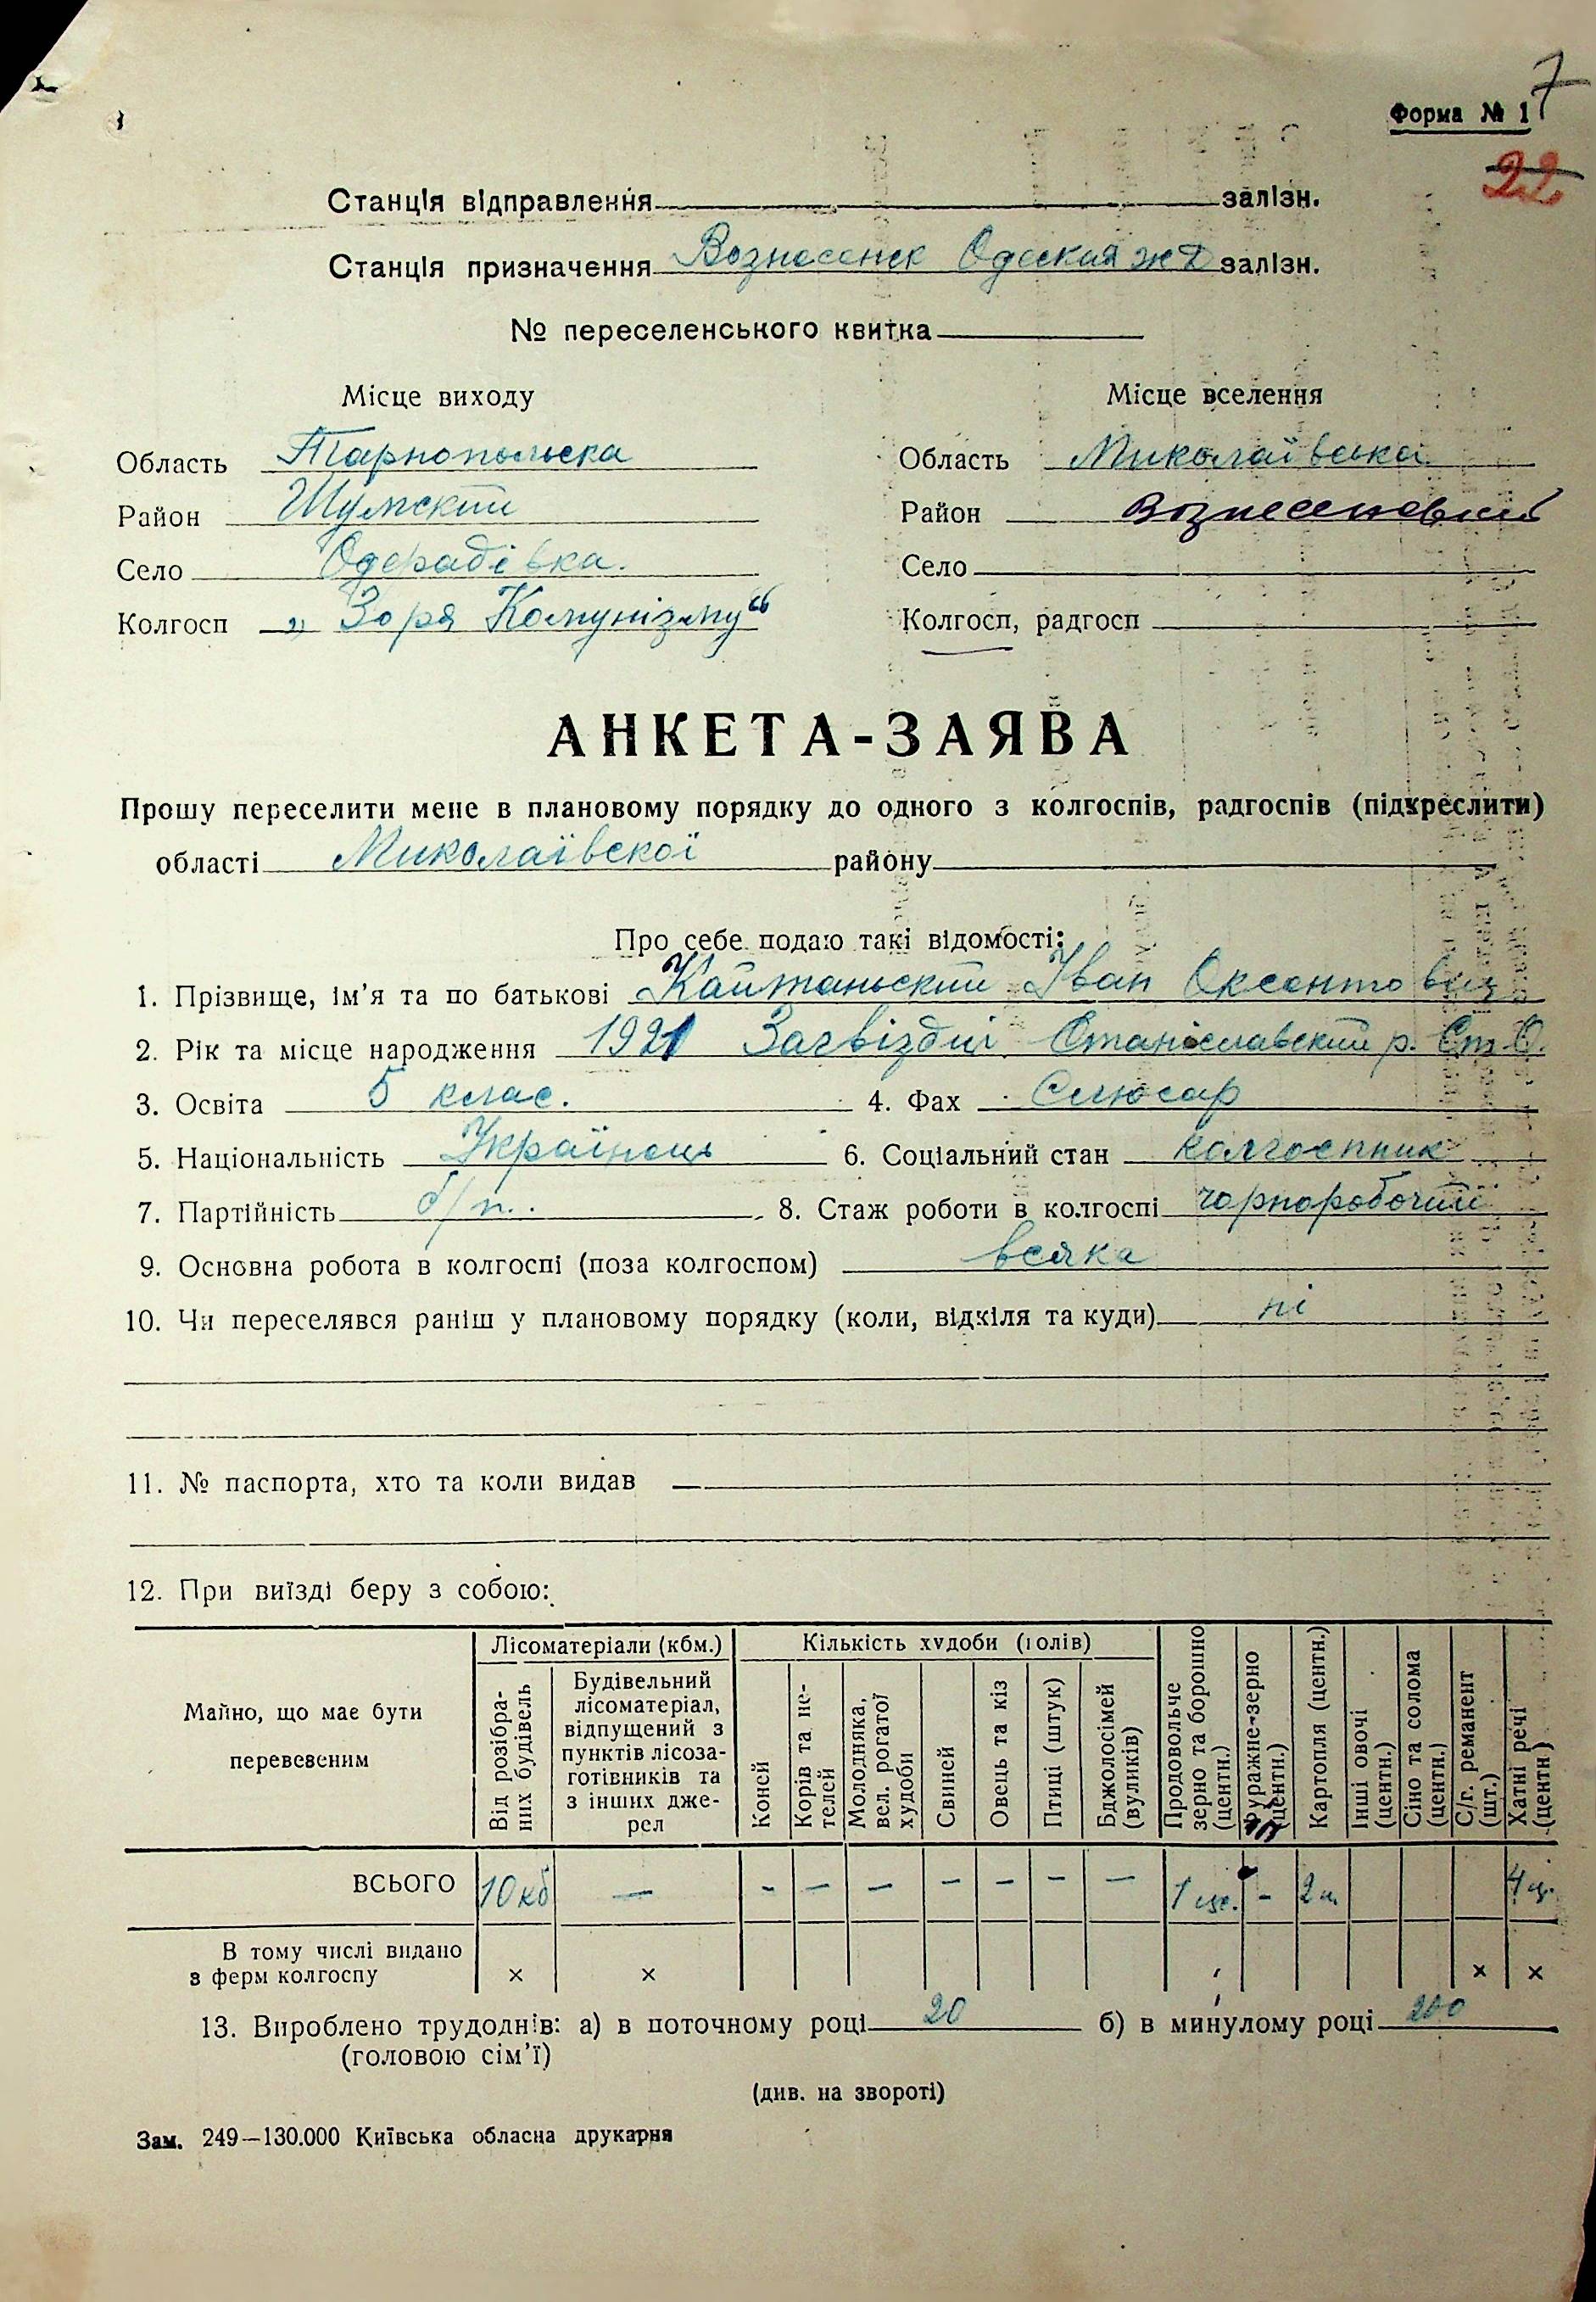 7
Форма № 1
22
Станція відправлення залізн.
Станція призначення Вознесенск Одеская жд залізн.
№ переселенського квитка
Місце виходу
Область Тарнопольска
Район Шумский
Село Одерадівка.
Колгосп „Зоря Комунізму"
Місце вселення
Область Миколаївська
Район Вознесеновский
Село
Колгосп, радгосп
АНКЕТА-ЗАЯВА
Прошу переселити мене в плановому порядку до одного з колгоспів, радгоспів (підкреслити)
області Миколаївскої району
Про себе подаю такі відомості:
1. Прізвище, ім'я та по батькові Кайтаньский Іван Оксентович
2. Рік та місце народження 1921 Загвіздці Станіславский р. Ст. О.
3. Освіта 5 клас. 4. Фах Слюсар
5. Національність Українець 6. Соціальний стан колгоспник
7. Партійність б/п. 8. Стаж роботи в колгоспі чорноробочий
9. Основна робота в колгоспі (поза колгоспом) всяка
10. Чи переселявся раніш у плановому порядку (коли, відкіля та куди) ні
11. № паспорта, хто та коли видав —
12. При виїзді беру з собою:
Майно, що має бути перевезеним
Лісоматеріали (кбм.)
Від розібраних будівель
Будівельний лісоматеріал, відпущений з пунктів лісозаготівників та з інших джерел
Кількість худоби (голів)
Коней
Корів та нетелей
Молодняка, вел. рогатої худоби
Свиней
Овець та кіз
Птиці (штук)
Бджолосімей (вуликів)
Продовольче зерно та борошно (центн.)
Фуражне-зерно (центн.)
Картопля (центн.)
Інші овочі (центн.)
Сіно та солома (центн.)
С/г. реманент (шт.)
Хатні речі (центн)
ВСЬОГО 10 кб — - — — — — — — 1 це. - 2 ц 4 ц.
В тому числі видано
з ферм колгоспу × × × ×
13. Вироблено трудоднів: а) в поточному році 20 б) в минулому році 200
(головою сім'ї)
(див. на звороті)
Зам. 249—130.000 Київська обласна друкарня